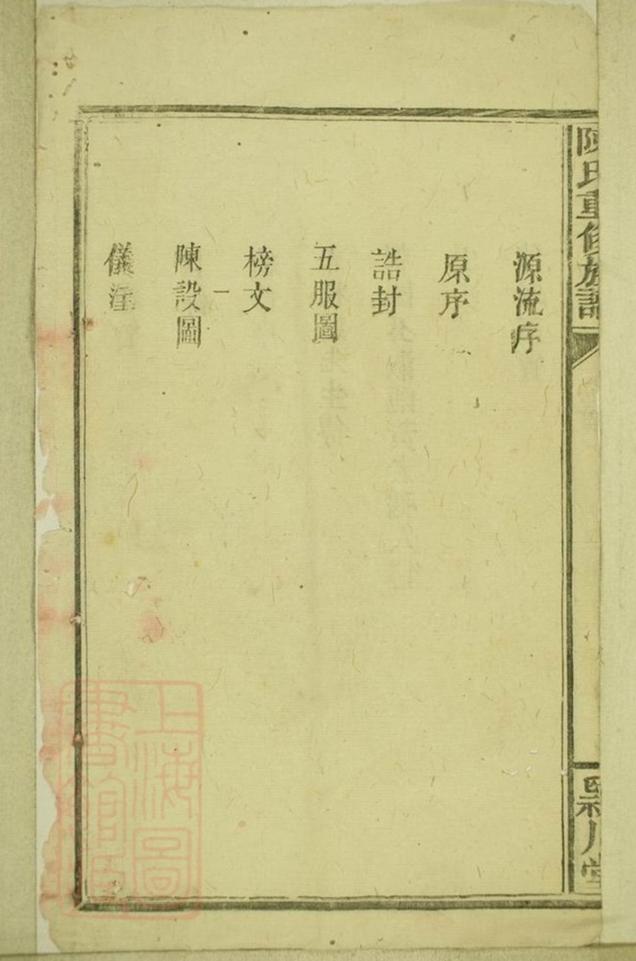 陳氏重修族譜
源流序
原序
誥封
五服圖
榜文
陳設圖
儀注
上海圖
書館藏